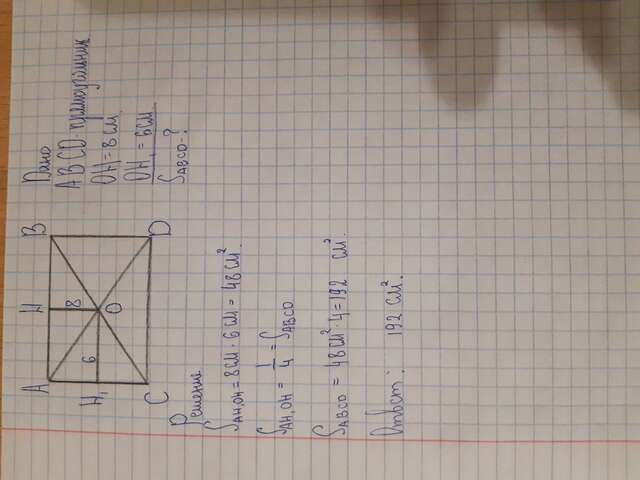 Дано
ABCD-прямоугольник
OH=8см
OH₁=6см
S_ABCD-?
A H B
8
6
H₁ O
C D
Решение
S_AH₁OH=8см·6см=48см².
S_AH₁OH=1/4=S_ABCD
S_ABCD=48см²·4=192 см².
Ответ: 192 см².